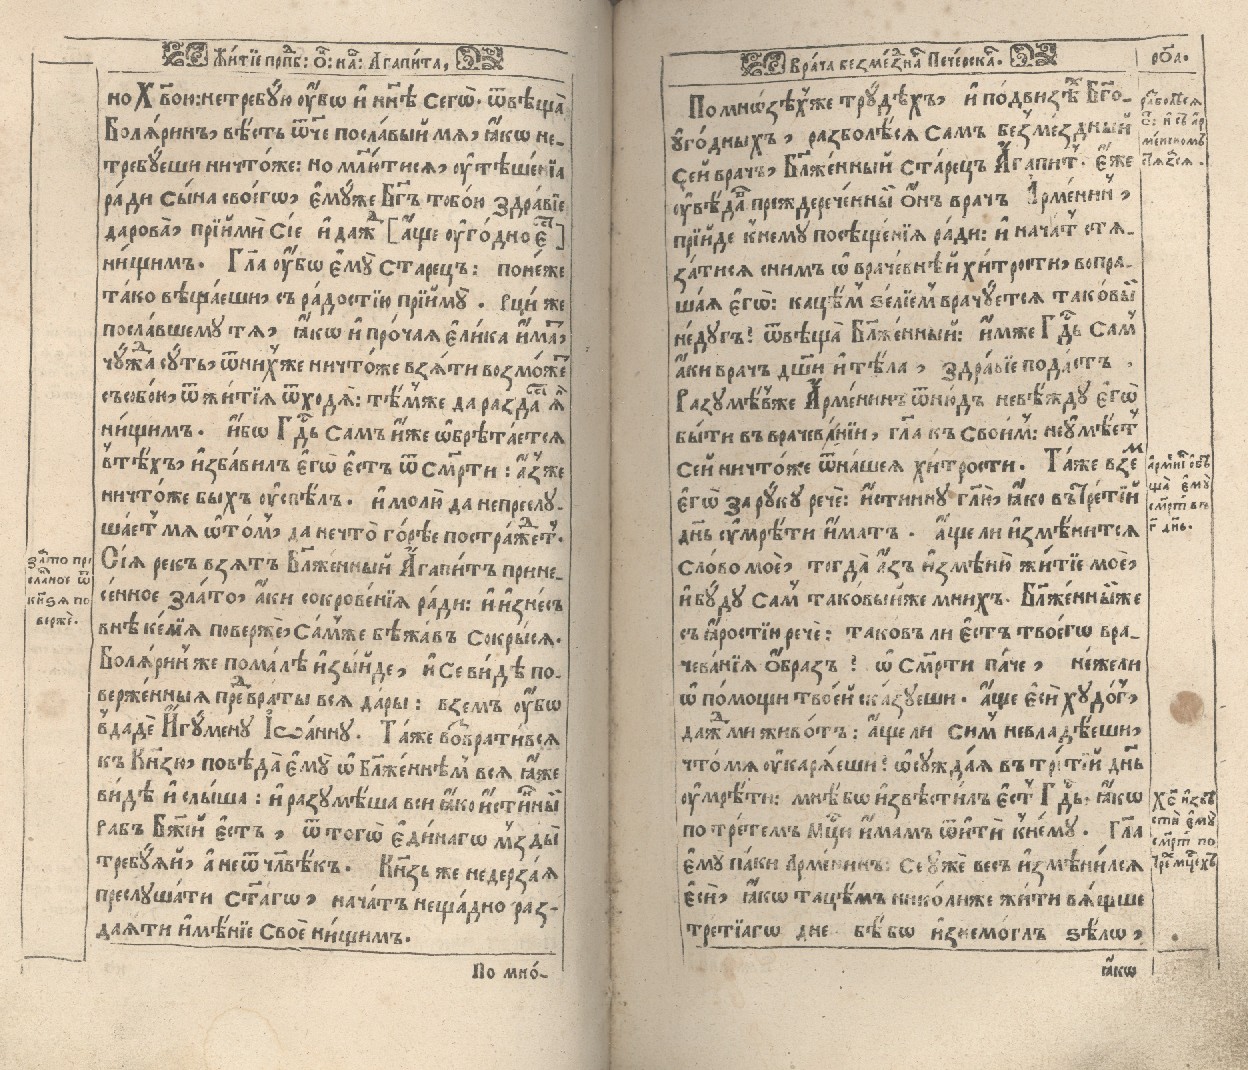 Жи́тїе прпⷣб: ѻ҃: на́: Агапи́та,
но Хв҃ою: нетре́бꙋю ᲂу҆́бѡ и҆ нн҃ѣ сегѡ̀. ѿвѣща̀
Боля́ринъ, вѣ́сть ѿч҃е посла́вый мѧ, ꙗ҆́кѡ не-
тре́бꙋеши ничто́же: но млю́тисѧ, ᲂу҆тѣше́нїѧ
ра́ди сы́на своегѡ̀, є҆мꙋ́же Бг҃ъ тобо́ю здра́вїе
дарова̀, прїймѝ сїѐ и҆ да́жⷣ [а҆́ще ᲂу҆го́дно є҆́сⷮ]
ни́щимъ. Гл҃а ᲂу҆́бѡ є҆мꙋ̀ ста́рецъ: поне́же
та́ко вѣща́еши, съ ра́достїю прїймꙋ̀. Рцы́ же
посла́вшемꙋ тѧ, ꙗ҆́кѡ и҆ про́чаѧ є҆ли́ка и҆́маⷮ,
чꙋ́жⷣа сꙋ́ть, ѿни́хже ничто́же взѧ́ти возмо́жеⷮ
съсобо́ю, ѿ жи́тїѧ ѿходѧ̀: тѣ́мже да разда́сⷮ ѧ҆̀
ни́щимъ. и҆́бѡ Гдⷭ҇ь са́мъ и҆́же ѡ҆брѣта́етсѧ
въ́тѣхъ, и҆зба́вилъ є҆гѡ̀ є҆́стъ ѿ сме́рти: а҆́зже
ничто́же бы́хъ ᲂу҆спѣ́лъ. и҆ молю̀ да непреслꙋ-
ша́етъ мѧ ѡ҆то́мъ, да нечто̀ го́рѣе постра́жⷣетъ.
Сїѧ̀ ре́къ взѧ́тъ Бл҃же́нный А҆гапи́тъ прине-
се́нное зла́то, а҆́ки сокрове́нїѧ ра́ди: и҆ и҆зне́съ
внѣ̀ ке́лїѧ пове́рже, са́мже бѣжа́въ сокры́сѧ.
Боля́риⷩже пома́лѣ и҆зы́йде, и҆ се ви́дѣ по-
ве́рженныѧ преⷣ враты̀ всѧ да́ры: взе́мъ ᲂу҆́бѡ
въдадѐ И҆гꙋ́менꙋ Іѡа́ннꙋ. Та́же возⷡрати́всѧ
къ Кн҃зю, повѣ́да є҆мꙋ̀ ѡ Бл҃же́ннѣмъ всѧ ꙗ҆́же
ви́дѣ и҆ слы́ша: и҆ разꙋмѣ́ша всѝ ꙗ҆́ко и҆́стинный
ра́бъ Бж҃їй є҆́стъ, ѿ тогѡ̀ є҆ди́нагѡ мзды̀
тре́бꙋѧй, а҆ неѿ чл҃вѣ́къ. Кн҃зь же недерза́ѧ
преслꙋша́ти ст҃а́гѡ, нача́тъ неща́дно раз-
даѧ́ти и҆мѣ́нїе своѐ ни́щимъ.
По мно́-
за́то при
сла́ное ѿ
кн҃ѕѧ по
ве́рже.
Врача̀ безме́зⷣна Пече́рскаⷢ.
ро҃а.
По мно́ѕѣхъже трꙋдѣ́хъ, и҆ по́двизѣⷯ Бг҃о-
ᲂу҆го́дныхъ, разболѣ́сѧ са́мъ безме́здный
се́й вра́чъ, Бл҃же́нный ста́рецъ А҆гапи́тъ. є҆́же
ᲂу҆вѣ́давъ преждерече́нный ѻ҆́нъ вра́чъ А҆рме́нинъ,
прїйде к̾немꙋ̀ посѣще́нїѧ ра́ди: и҆ нача́т стѧ-
за́тисѧ сни́мъ ѡ҆ враче́внѣй хи́трости, вопра-
ша́ѧ є҆гѡ̀: каце́мъ ѕе́лїемъ врачꙋ́етсѧ таковы́й
недꙋ́гъ? ѿвѣща̀ Бл҃же́нный: и҆́мже Гдⷭ҇ь са́мъ
а҆́ки вра́чъ дш҃и и҆ тѣ́ла, здра́вїе пода́стъ.
Разꙋмѣ́въже А҆рме́нинъ ѿню́дъ невѣ́ждꙋ є҆гѡ̀
бы́ти въ врачева́нїи, гл҃а къ свои́мъ: неꙋмѣ́етъ
се́й ничто́же ѿна́шеѧ хи́трости. Та́же взе́мъ
є҆гѡ̀ за рꙋ́кꙋ речѐ: и҆́стиннꙋ гл҃ю, ꙗ҆́кѡ въ тре́тїй
дн҃ь ᲂу҆мре́ти и҆́матъ. а҆́ще ли и҆змѣни́тсѧ
сло́во моѐ, тогда̀ а҆́зъ и҆змѣню̀ житїѐ моѐ,
и҆ бꙋ́дꙋ са́м таковы́йже мни́хъ. Бл҃же́нныйже
съ ꙗ҆́ростїю речѐ: тако́въ ли є҆́стъ твоегѡ̀ вра-
чева́нїѧ ѻ҆́бразъ? ѡ҆ сме́рти па́че, не́жели
ѡ҆ по́мощи твое́й ска́зꙋеши. а҆́ще є҆сѝ хꙋдо́гъ,
да́жⷣ ми живо́тъ: а҆́ще ли си́м невладѣ́еши,
что́ мѧ ᲂу҆карѧ́еши? ѡ҆сꙋжда́ѧ въ тре́тїй дн҃ь
ᲂу҆мре́ти: мнѣ́ бѡ и҆звѣсти́лъ є҆́стъ Гдⷭ҇ь, ꙗ҆́кѡ
по тре́темъ мц҃и и҆́мамъ ѿи́ти к̾немꙋ̀. Гл҃а
є҆мꙋ̀ па́ки А҆рме́нинъ: се ᲂужѐ ве́съ и҆змѣни́лсѧ
є҆сѝ, ꙗ҆́кѡ таце́мъ нико́лиже жи́ти вѧ́щше
тре́тїагѡ дне. бѣ́ бѡ и҆знемо́глъ ѕѣлѡ̀,
ꙗ҆́кѡ